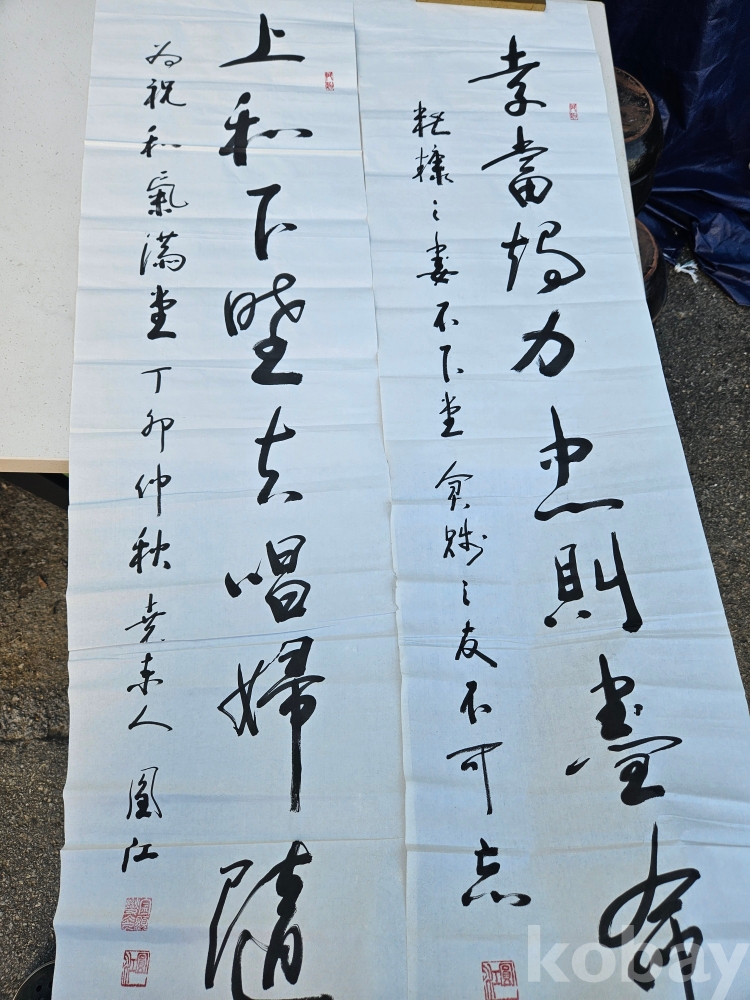 孝當竭力忠則盡命
糟糠之妻不下堂 貧賤之友不可忘
上和下睦夫唱婦隨
為祝和氣滿堂 丁卯仲秋 人 凰江
kobay